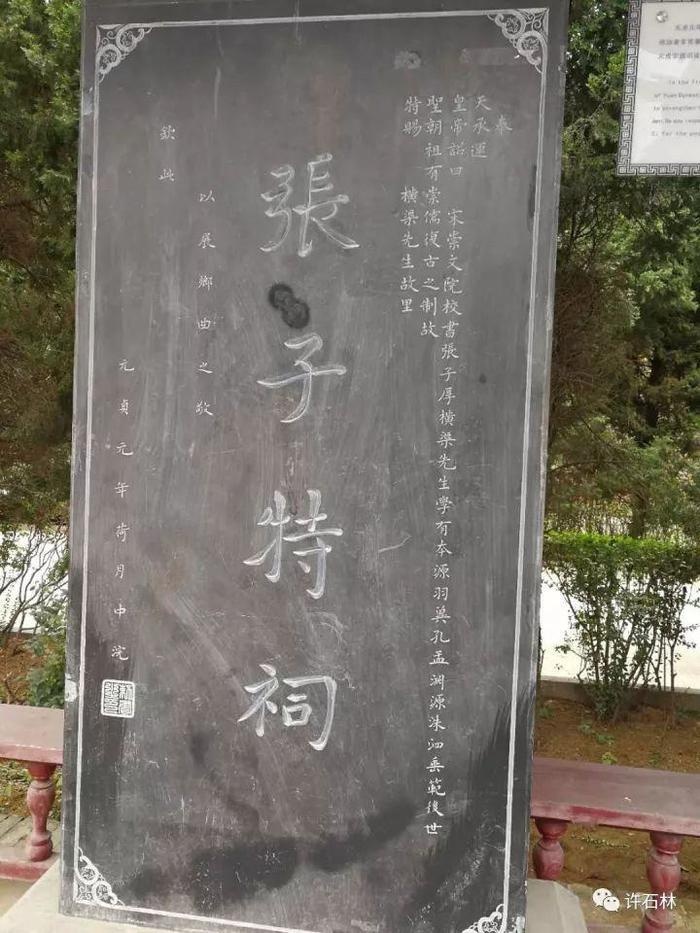 奉
天承運
皇帝詔曰 宋崇文院校書張子厚橫渠先生學有本源羽翼孔孟淵源洙泗垂範後世
聖朝祖有崇儒復古之制故
特賜 橫渠先生故里
張子特祠
以展鄉曲之敬
欽此
元貞元年荷月中浣
In the fir
of Yuan Dynast
to strengthen t
许石林